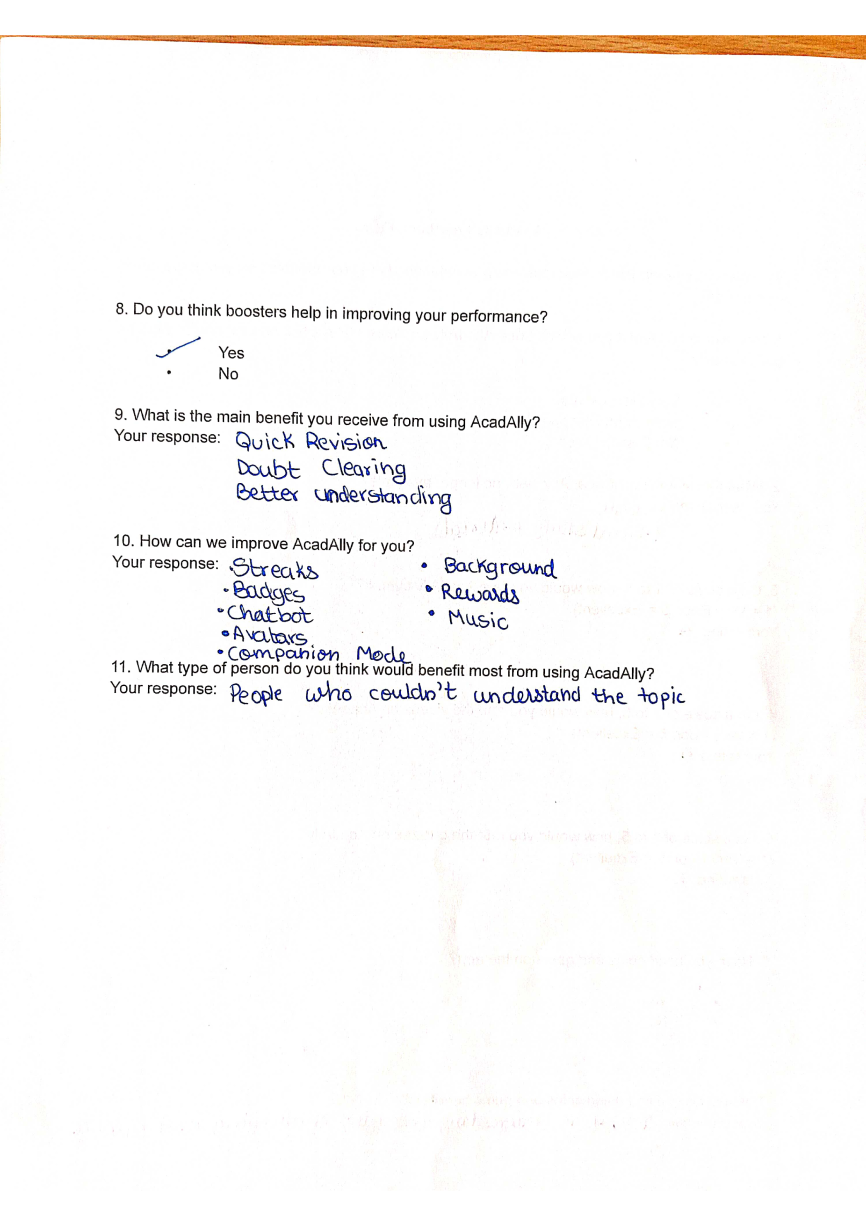 8. Do you think boosters help in improving your performance?
Yes
• No
9. What is the main benefit you receive from using AcadAlly?
Your response: Quick Revision
Doubt Clearing
Better understanding
10. How can we improve AcadAlly for you?
Your response: •Streaks
•Badges
•Chatbot
•Avatars
•Companion Mode
• Background
• Rewards
• Music
11. What type of person do you think would benefit most from using AcadAlly?
Your response: People who couldn't understand the topic